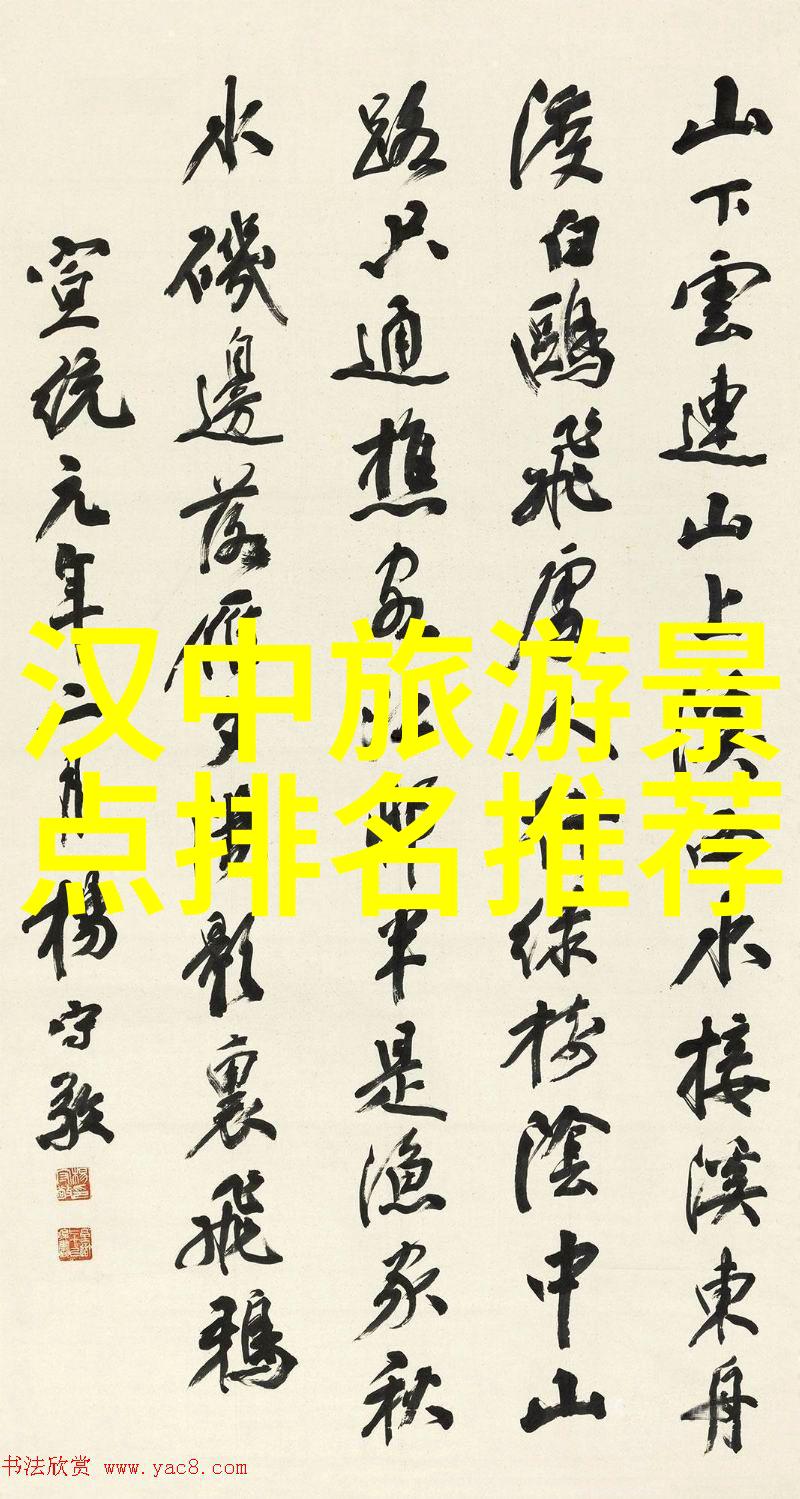 山下雲連山上溪西水接溪東舟
渡白鷗飛處人行綠樹陰中山
路只通樵客江邨半是漁家秋
水磯邊落雁夕陽影裏飛鴉
宣統元年二月楊守敬
汉中旅游景
点排名推荐
书法欣赏 www.yac8.com